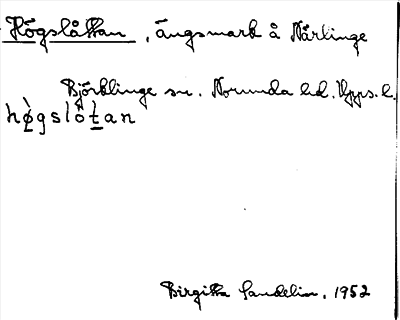 Högslåttan, ängsmark å Närlinge
Björklinge sn. Norunda hd. Upps. l.
hø̀gslòt̲an
Birgitta Sandelin. 1952